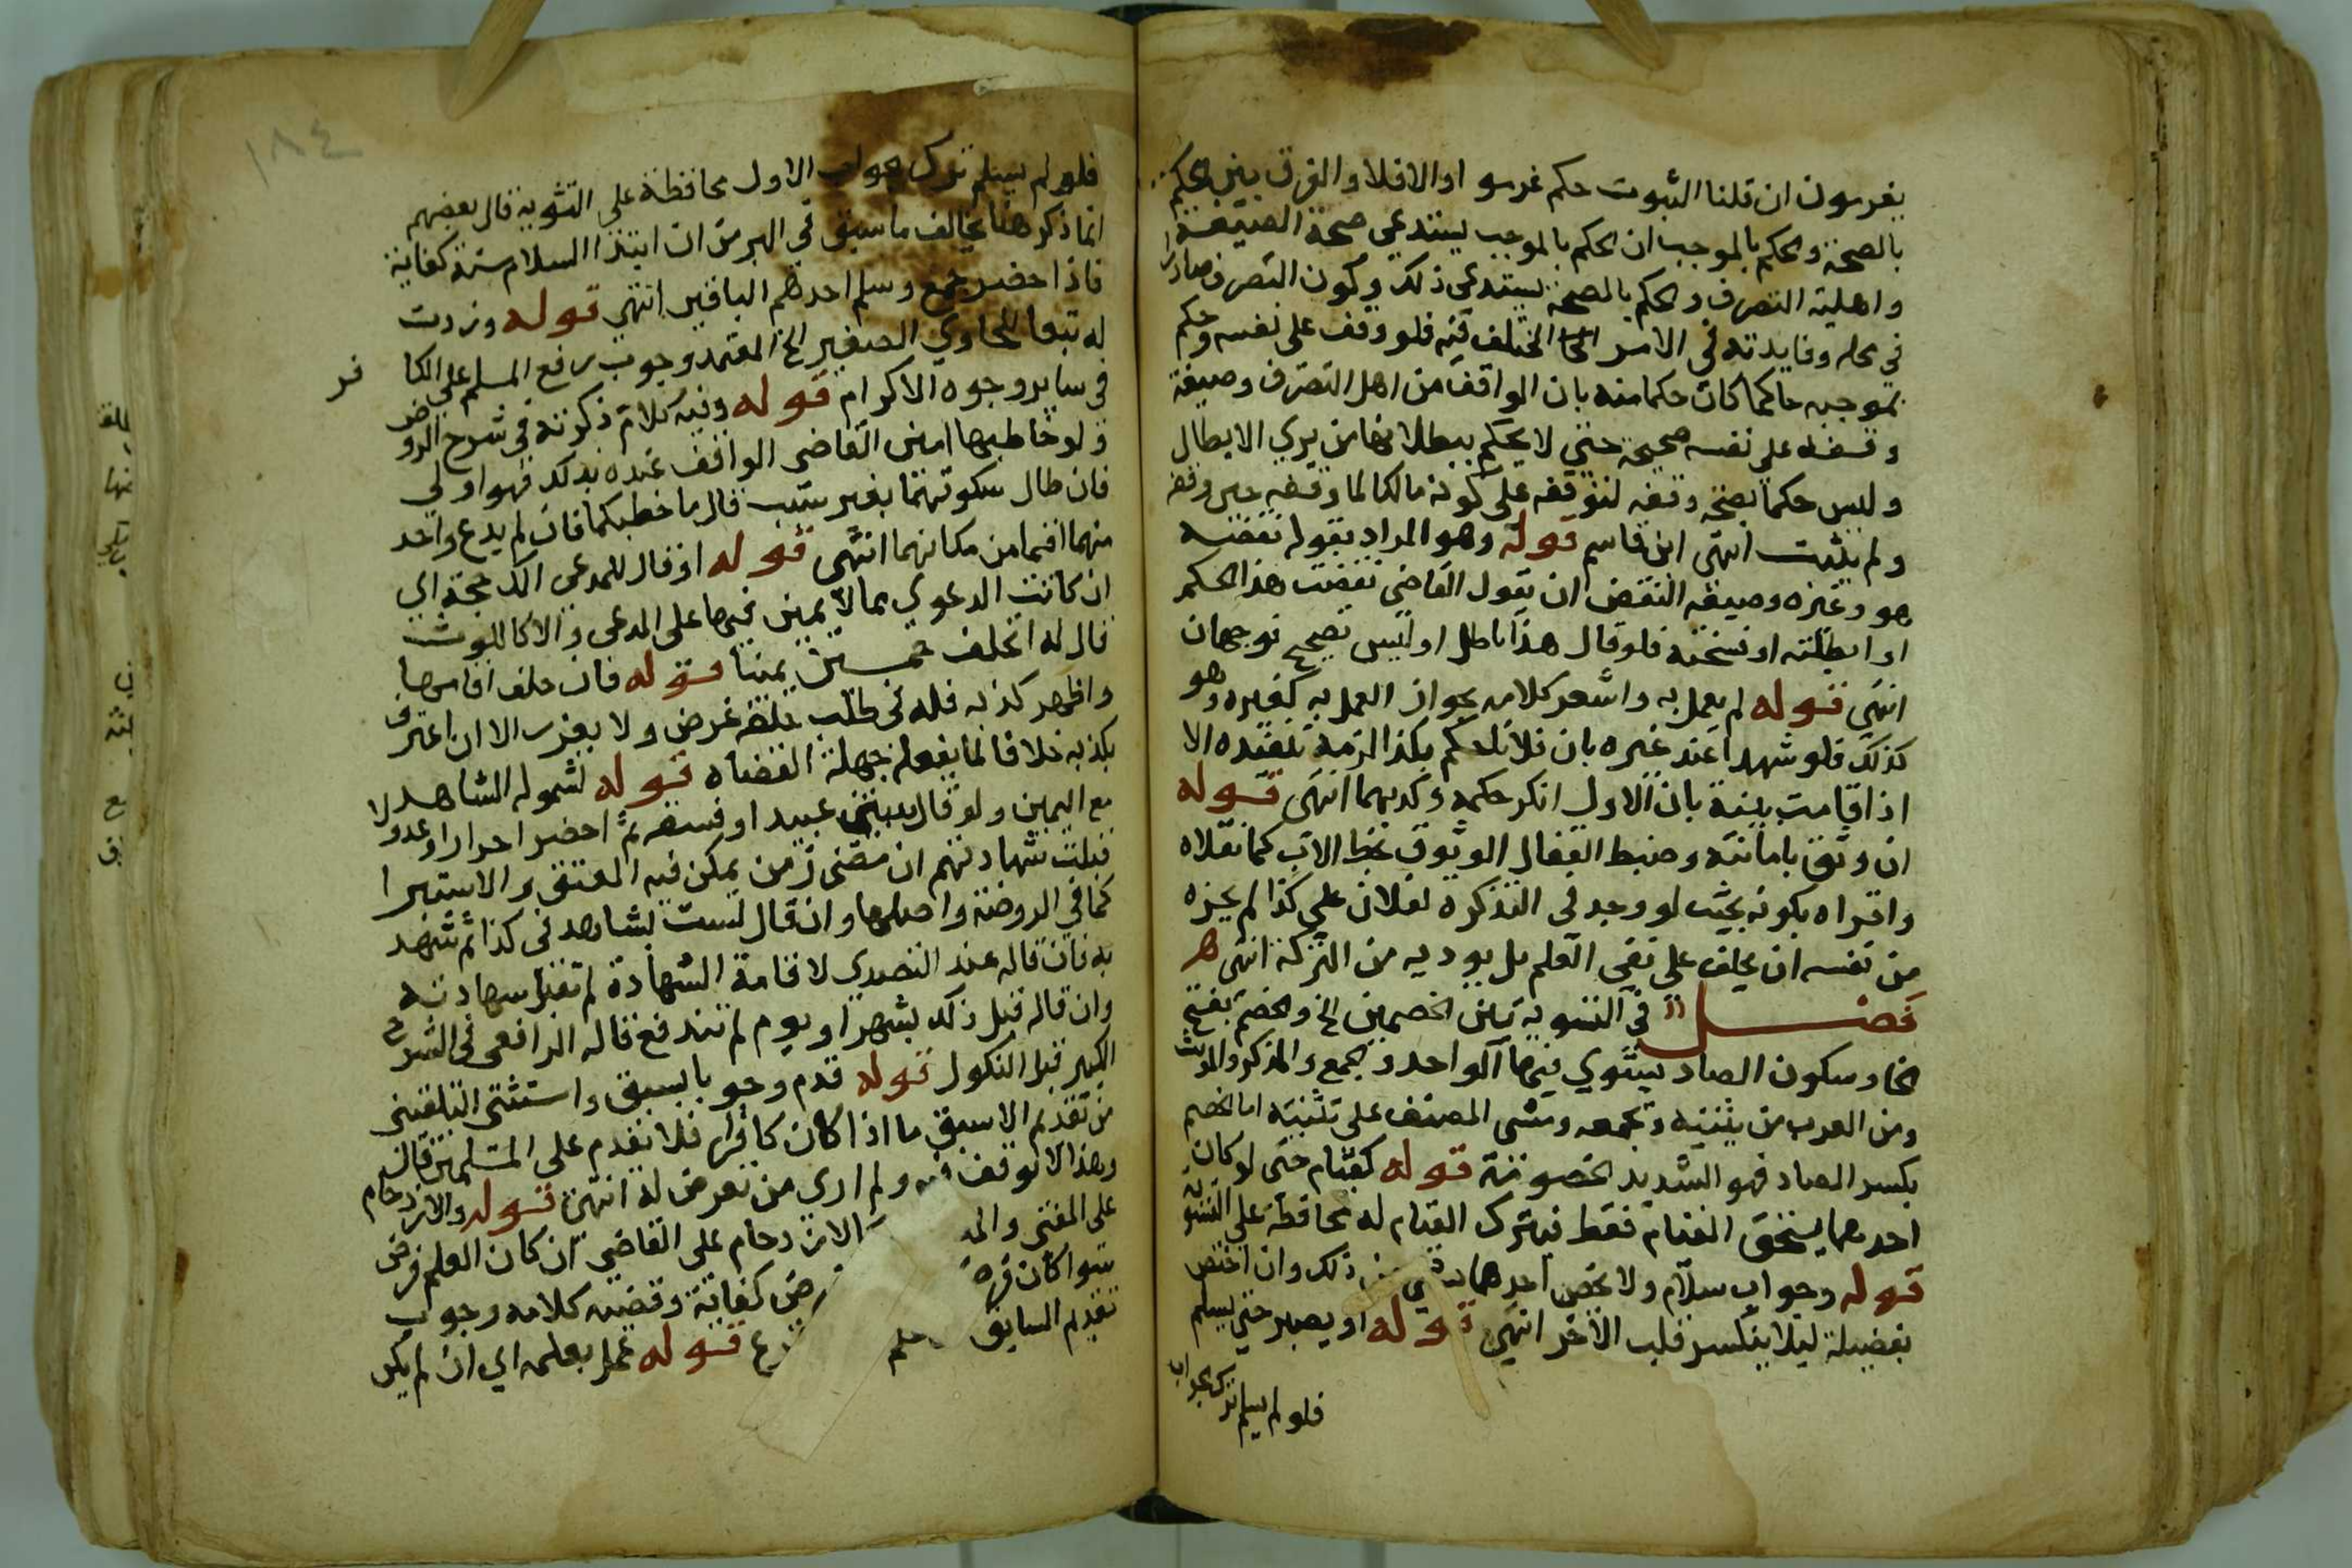 يغرمون ان قلنا الثبوت حكم غرموا والا فلا والفرق بين الحكم
بالصحة والحكم بالموجب ان الحكم بالموجب يستدعي صحة الصيغة
واهلية التصرف والحكم بالصحة يستدعي ذلك وكون التصرف صادرا
في محله وفايدته في الامر المختلف فيه فلو وقف على نفسه وحكم
بموجبه حاكم كان حكما منه بان الواقف من اهل التصرف وصيغة
وقفه على نفسه صحيحة حتى لا يحكم ببطلانها من يري الابطال
وليس حكما بصحة وقفه لتوقفه على كونه مالكا لما وقفه حين وقفه
ولم يثبت انتهى ابن قاسم قوله وهو المراد بقوله نقضه
هو وغيره وصيغة النقض ان يقول القاضي نقضت هذا الحكم
او ابطلته او فسخته فلو قال هذا باطل او ليس بصحيح فوجهان
انتهي قوله لم يعمل به واشعر كلامه بجواز العمل به لغيره وهو
كذلك فلو شهدا عند غيره بان فلانا حكم بكذا لزمه تنفيذه الا
اذا قامت بينة بان الاول انكر حكمه وكذبهما انتهى قوله
ان وثق بامانته وضبط القفال الوثوق بخط الاب كما نقلاه
واقراه بكونه بحيث لو وجد في التذكرة لفلان علي كذا لم يجزه
من نفسه ان يحلف على نفي العلم بل يوديه من التركة انتهى
فصل في التسوية بين الخصمين الخ والخصم بفتح
الخا وسكون الصاد يستوي فيها الواحد والجمع والمذكر والمونث
ومن العرب من يثنيه ويجمعه ومشى المصنف على تثنيته اما الخصم
بكسر الصاد فهو الشديد الخصومة قوله كقيام حتى لو كان
احدهما يستحق القيام فقط فيترك القيام له محافظة على التسوية
قوله وجواب سلام ولا يخص احدهما بشي من ذلك وان اختص
بفضيلة ليلا ينكسر قلب الاخر انتهي قوله او يصبر حتى يسلم
فلو لم يسلم ترك جواب
١٨٤
فلو لم يسلم ترك جواب الاول محافظة على التسوية قال بعضهم
انما ذكر هنا يخالف ما سبق في السير من ان ابتدا السلام سنة كفاية
فاذا حضر جمع وسلم احدهم الباقين انتهي قوله وزدت
له تبعا للحاوي الصغير الخ المعتمد وجوب رفع المسلم على الكافر
في ساير وجوه الاكرام قوله وفيه كلام ذكرته في شرح الروض
ولو خاطبهما امين القاضي الواقف عنده بذلك فهو اولي
فان طال سكوتهما بغير سبب قال ما خطبكما فان لم يدع واحد
منهما اقيما من مكانهما انتهى قوله او قال للمدعي الك حجة اي
ان كانت الدعوي بما لا يمين فيها على المدعي والا كاللوث
قال له اتحلف خمسين يمينا قوله فان حلف اقامها
واظهر كذبه فله في طلب حلفه غرض ولا يعزر الا ان اعترف
بكذبه خلافا لما يفعله جهلة القضاه قوله لشموله الشاهد
مع اليمين ولو قال بينتي عبيد او فسقة ثم احضر احرارا وعدولا
قبلت شهادتهم ان مضى زمن يمكن فيه العتق والاستبرا
كما في الروضة واصلها وان قال لست بشاهد في كذا ثم شهد
به فان قاله عند التصدي لاقامة الشهادة لم تقبل شهادته
وان قاله قبل ذلك بشهر او يوم لم تندفع قاله الرافعي في الشرح
الكبير قبل النكول قوله قدم وجوبا بسبق واستثنى البلقيني
من تقديم الاسبق ما اذا كان كافرا فلا تقدم على المسلمين قال
وهذا لا توقف فيه ولم ارى من تعرض له انتهى قوله والازدحام
على المفتي والمد الازدحام على القاضي ان كان العلم فرض
سوا كان فرض كفاية وقضية كلامه وجوب
تقديم السابق قوله عمل بعلمه اي ان لم يكن